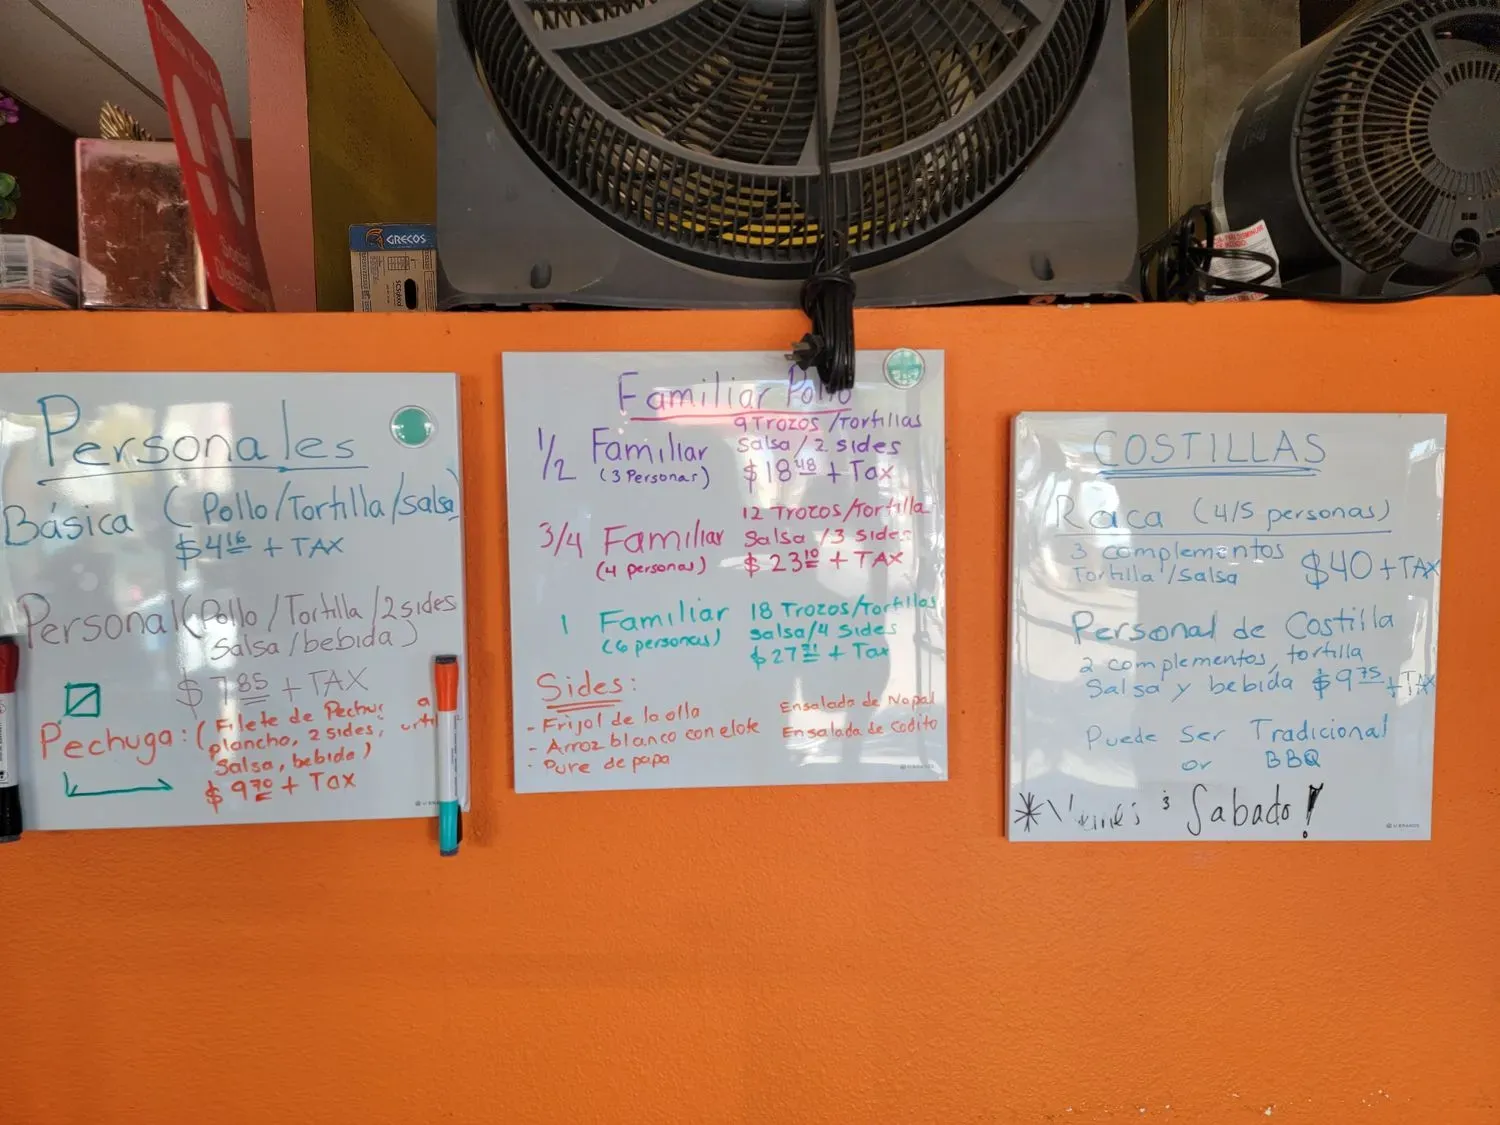 GRECOS
Personales
Básica (Pollo/Tortilla/Salsa)
$4.16 + TAX
Personal (Pollo/Tortilla/2 sides
Salsa/bebida)
$7.85 + TAX
Pechuga: (Filete de
plancha, 2 sides,
Salsa, bebida)
$9.70 + Tax
Familiar Pollo
1/2 Familiar
(3 Personas)
9 Trozos /Tortillas
Salsa/2 sides
$18.48 + Tax
3/4 Familiar
(4 personas)
12 Trozos/Tortilla
Salsa /3 sides
$23.10 + TAX
1 Familiar
(6 personas)
18 Trozos/Tortillas
Salsa/4 Sides
$27.71 + Tax
Sides:
- Frijol de la olla
- Arroz blanco con elote
- Pure de papa
Ensalada de Nopal
Ensalada de Codito
COSTILLAS
Raca (4/5 personas)
3 complementos
Tortilla/Salsa
$40 + TAX
Personal de Costilla
2 complementos, tortilla
Salsa y bebida $9.75 + TAX
Puede Ser Tradicional
or BBQ
Sabado!